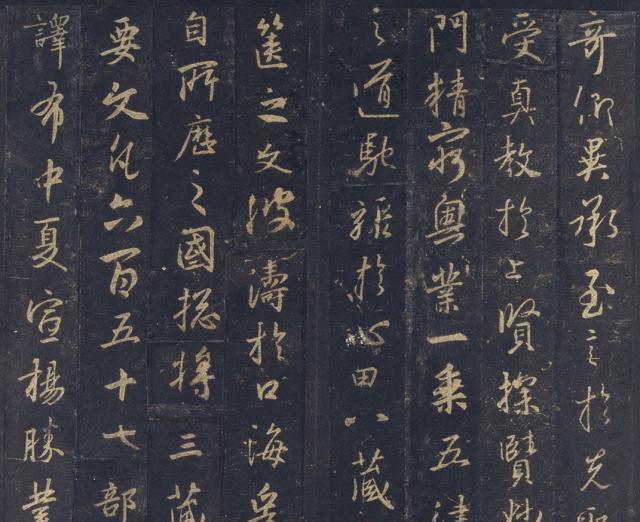 奇仰異承至言於先聖
受真教於上賢探賾妙
門精窮奧業一乘五律
之道馳驟於心田八藏
篋之文波濤於口海爰
自所歷之國總將三藏
要文凡六百五十七部
譯布中夏宣揚勝業